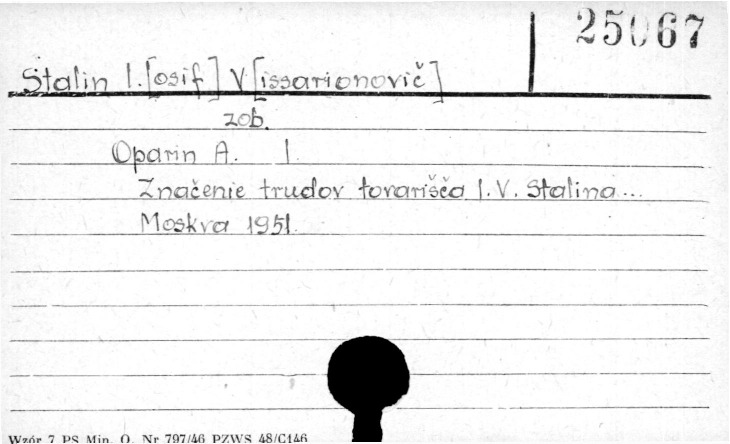 25067
Stalin I.[osif] V[issarionovič]
zob.
Oparin A. I.
Značenie trudov tovarišča I. V. Stalina...
Moskva 1951.
Wzór 7 PS Min. O. Nr 797/46 PZWS 48/C146